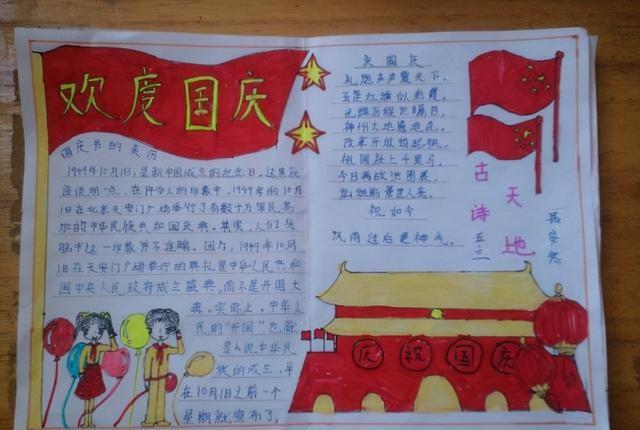 欢度国庆
国庆节的来历
1949年10月1日,是新中国成立的纪念日。这里应
该说明一点,在许多人的印象中,1949年的10月
1日在北京天安门广场举行了有数十万军民参
加的中华人民共和国开国大典。其实,人们头
脑中这一印象并不准确。因为,1949年10月
1日在天安门广场举行的典礼是中华人民共和
国中央人民政府成立盛典,而不是开国大
典。实际上,中华人
民的"开国"也就
是人说中华民
族的成立,早
在10月1日之前一个
星期就宣布了。
贺国庆
礼炮声声震天下,
五星红旗似彩霞。
光辉历程
神州大地遍地花。
改革开放
今日再放
祝如今
风雨过后更神气。
古诗
天地
五三
庆祝国庆